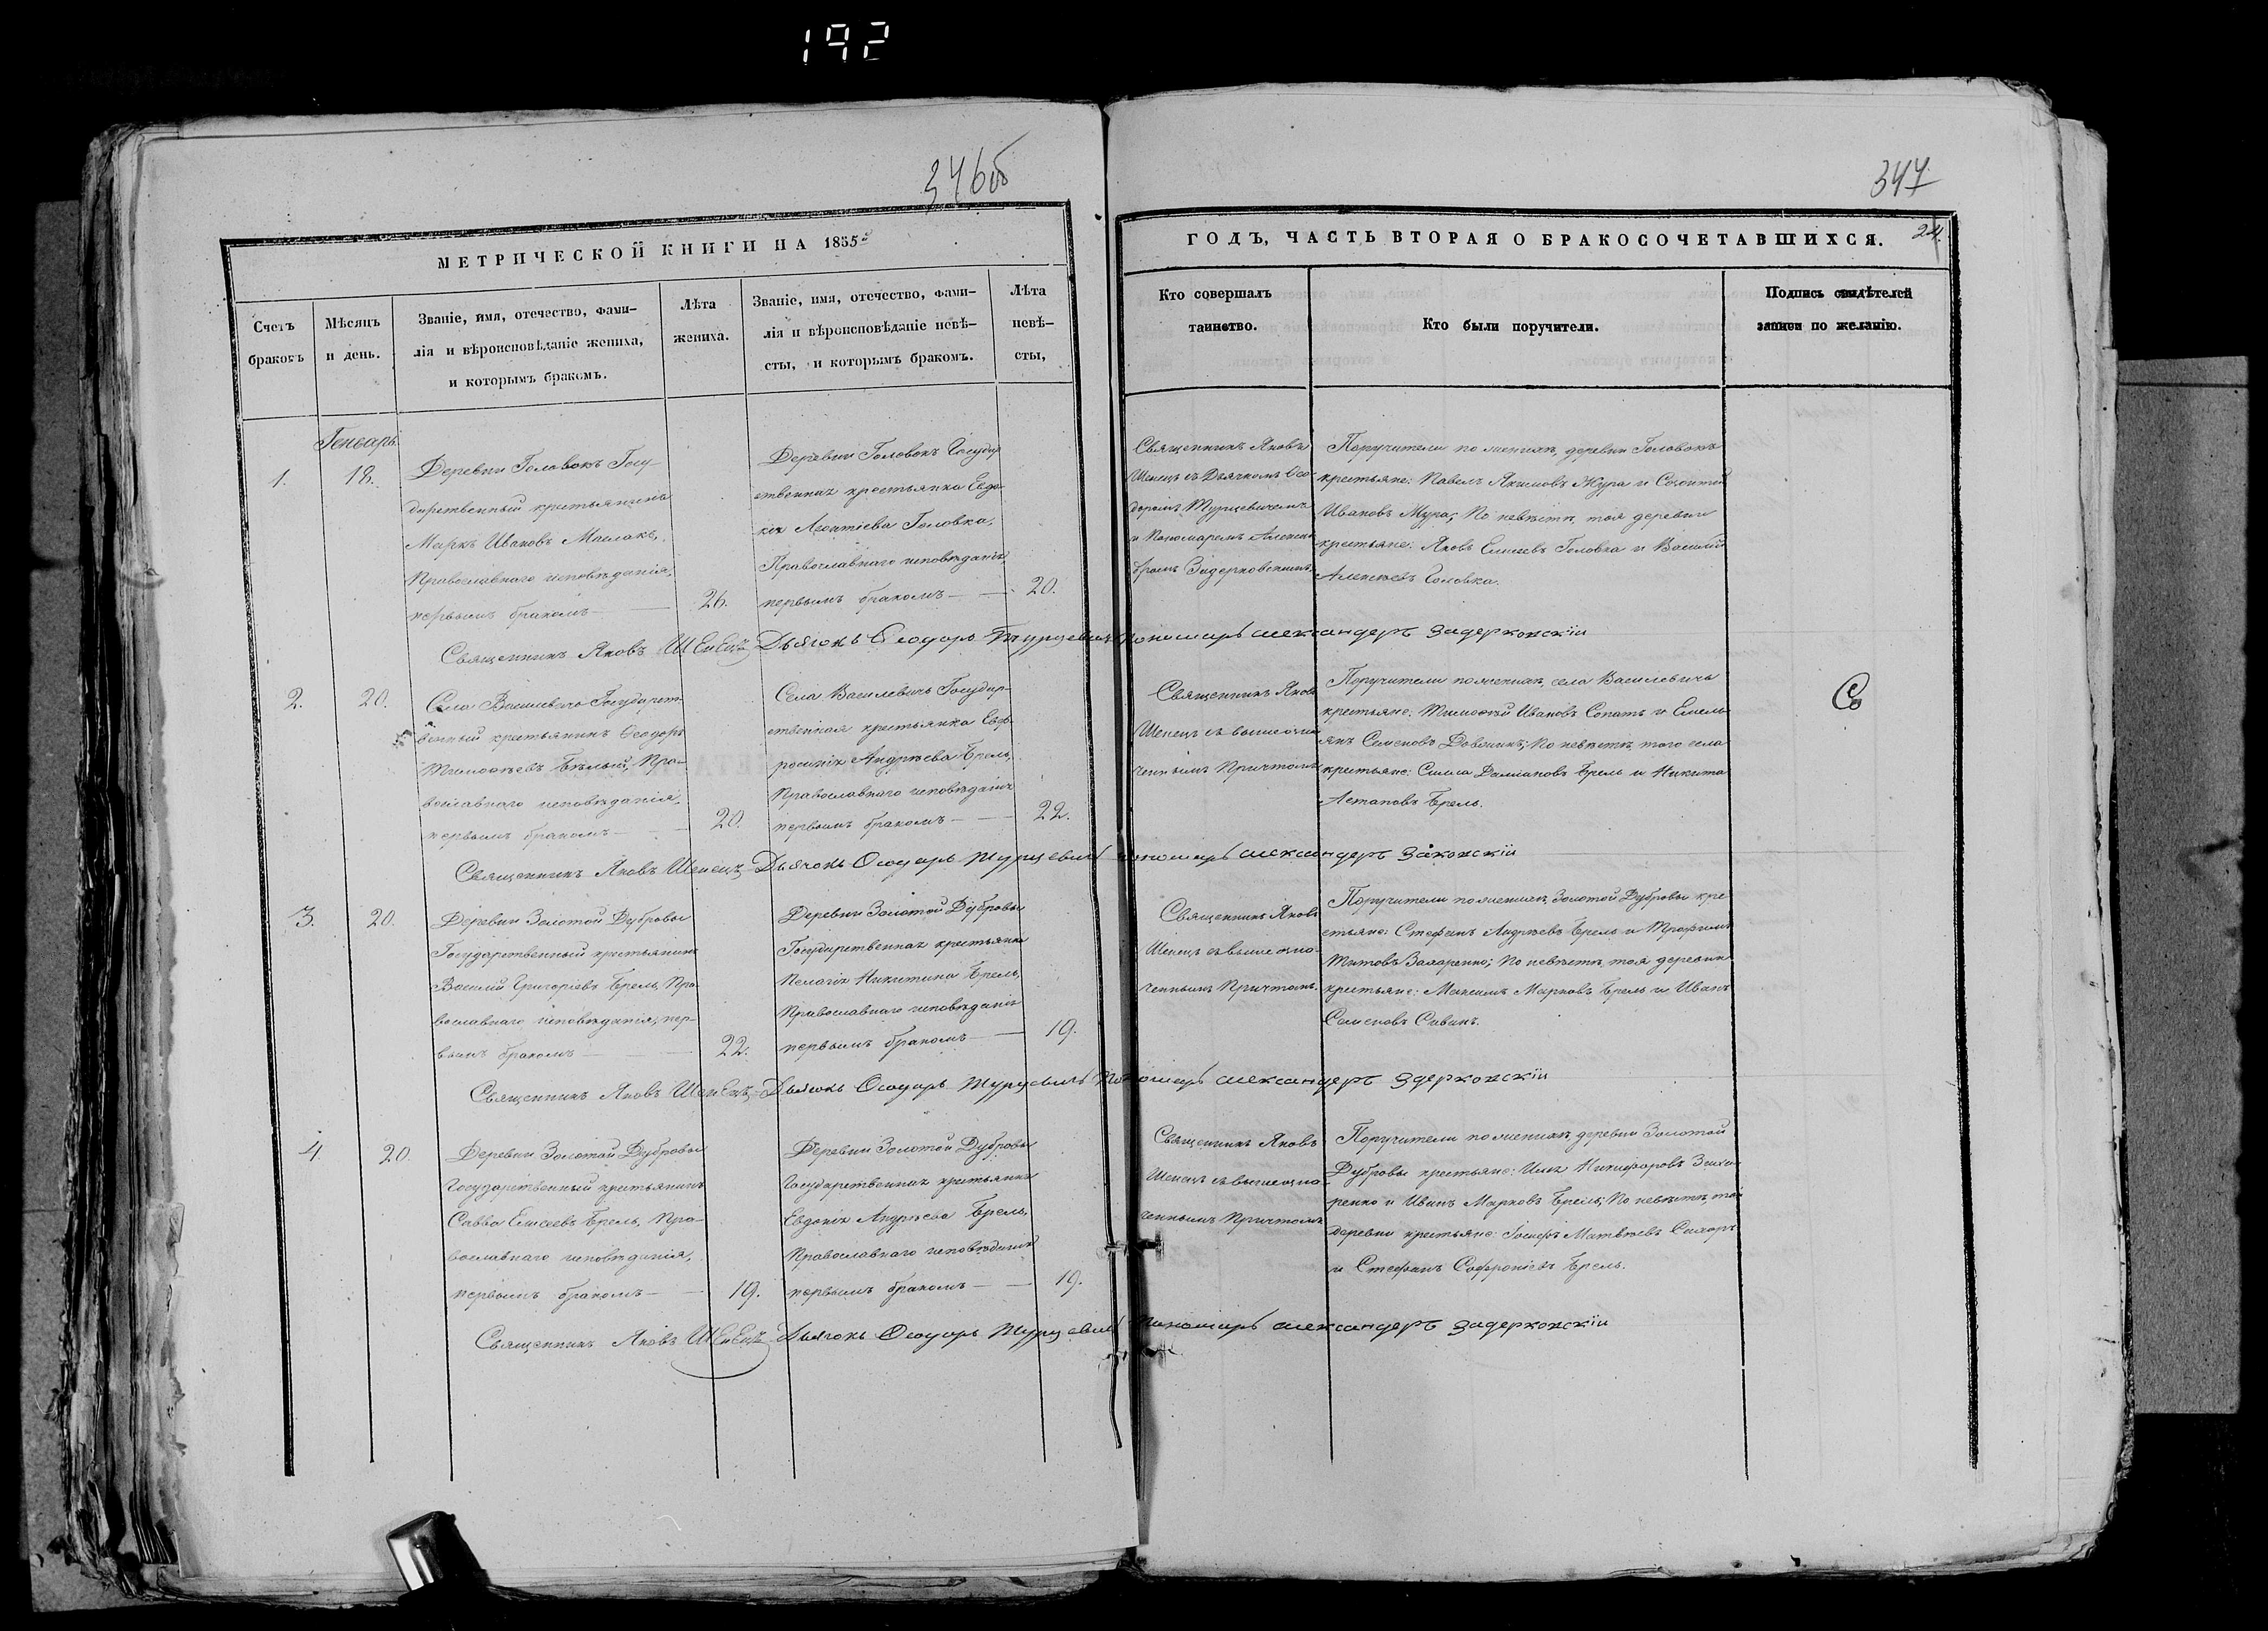 192
346об
347
МЕТРИЧЕСКОЙ КНИГИ НА 1855й
Счетъ
браковъ
Мѣсяцъ
и день.
Званіе, имя, отечество, фами-
лія и вѣроисповѣданіе жениха,
и которымъ бракомъ.
Лѣта
жениха.
Званіе, имя, отечество, фами-
лія и вѣроисповѣданіе невѣ-
сты, и которымъ бракомъ.
Лѣта
невѣ-
сты,
ГОДЪ, ЧАСТЬ ВТОРАЯ О БРАКОСОЧЕТАВШИХСЯ.
24.
Кто совершалъ
таинство.
Кто были поручители.
Подпись свидѣтелей
записи по желанію.
Генварь
1.
18.
Деревни Головокъ Госу-
дарственный крестьянинъ
Маркъ Ивановъ Маслакъ,
Православнаго исповѣданія,
первымъ бракомъ
26.
Деревни Головокъ Государ-
ственная крестьянка Евдо-
кія Леонтіева Головка,
Православнаго исповѣданія,
первымъ бракомъ
20.
Священникъ Яковъ
Шенецъ съ Дьячкомъ Ѳео-
доромъ Турцевичемъ
и Пономаремъ Алексан-
дромъ Задерковскимъ.
Поручители по женихѣ, деревни Головокъ
крестьяне: Павелъ Якимовъ Жура и
Ивановъ Мура; По невѣстѣ, тоя деревни
крестьяне: Яковъ Елисеевъ Головка и Василій
Алексѣевъ Головка.
Священникъ Яковъ Шенецъ Дьячокъ Ѳеодоръ Турцевичъ Пономарь Александеръ Задерковскій
2.
20.
Села Василевичъ Государст-
венный крестьянинъ Ѳеодоръ
Тимоѳеевъ Бѣлый, Пра-
вославнаго исповѣданія,
первымъ бракомъ
20.
Села Василевичъ Государ-
ственная крестьянка Евф-
росинія Андреева Брель,
Православнаго исповѣданія
первымъ бракомъ
22.
Священникъ Яковъ
Шенецъ съ вышеозна-
ченнымъ Причтомъ
Поручители по женихѣ, села Василевичъ
крестьяне: Тимоѳей Ивановъ Сопатъ и Емель-
янъ Семеновъ Довжикъ; По невѣстѣ, того села
крестьяне: Симіа Даміановъ Брель и Никита
Астаповъ Брель.
Священникъ Яковъ Шенецъ Дьячокъ Ѳеодоръ Турцевичъ Пономарь Александеръ Заковскій
3.
20.
Деревни Золотой Дубровы
Государственный крестьянинъ
Василій Григоріевъ Брель, Пра-
вославнаго исповѣданія, пер-
вымъ бракомъ
22.
Деревни Золотой Дубровы
Государственная крестьянка
Пелагія Никитина Брель,
Православнаго исповѣданія
первымъ бракомъ
19.
Священникъ Яковъ
Шенецъ съ вышеозна-
ченнымъ Причтомъ.
Поручители по женихѣ, Золотой Дубровы кре-
стьяне: Стефанъ Андреевъ Брель и Трофимъ
Титовъ Захаренко; По невѣстѣ, тоя деревни
крестьяне: Максимъ Марковъ Брель и Иванъ
Семеновъ Сивакъ.
Священникъ Яковъ Шенецъ Дьячокъ Ѳеодоръ Турцевичъ Пономарь Александеръ Здерковскій
4.
20.
Деревни Золотой Дубровы
Государственный крестьянинъ
Савва Елисеевъ Брель, Пра-
вославнаго исповѣданія,
первымъ бракомъ
19.
Деревни Золотой Дубровы
Государственная крестьянка
Евдокія Андреева Брель,
Православнаго исповѣданія
первымъ бракомъ
19.
Священникъ Яковъ
Шенецъ съ вышеозна-
ченнымъ Причтомъ
Поручители по женихѣ, деревни Золотой
Дубровы крестьяне: Илія Никифоровъ Заха-
ренко и Иванъ Марковъ Брель; По невѣстѣ, той
деревни крестьяне: Іосифъ Матвѣевъ Сахоръ
и Стефанъ Софроніевъ Брель.
Священникъ Яковъ Шенецъ Дьячокъ Ѳеодоръ Турцевичъ Пономарь Александеръ Задерковскій